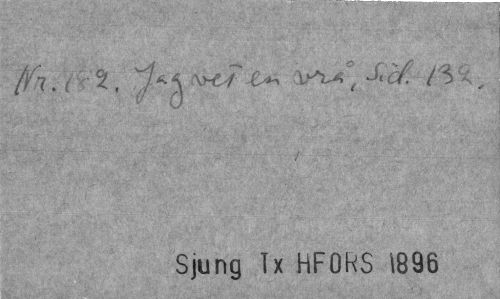 Nr. 182. Jag vet en vrå, Sid. 132.
Sjung Tx HFORS 1896